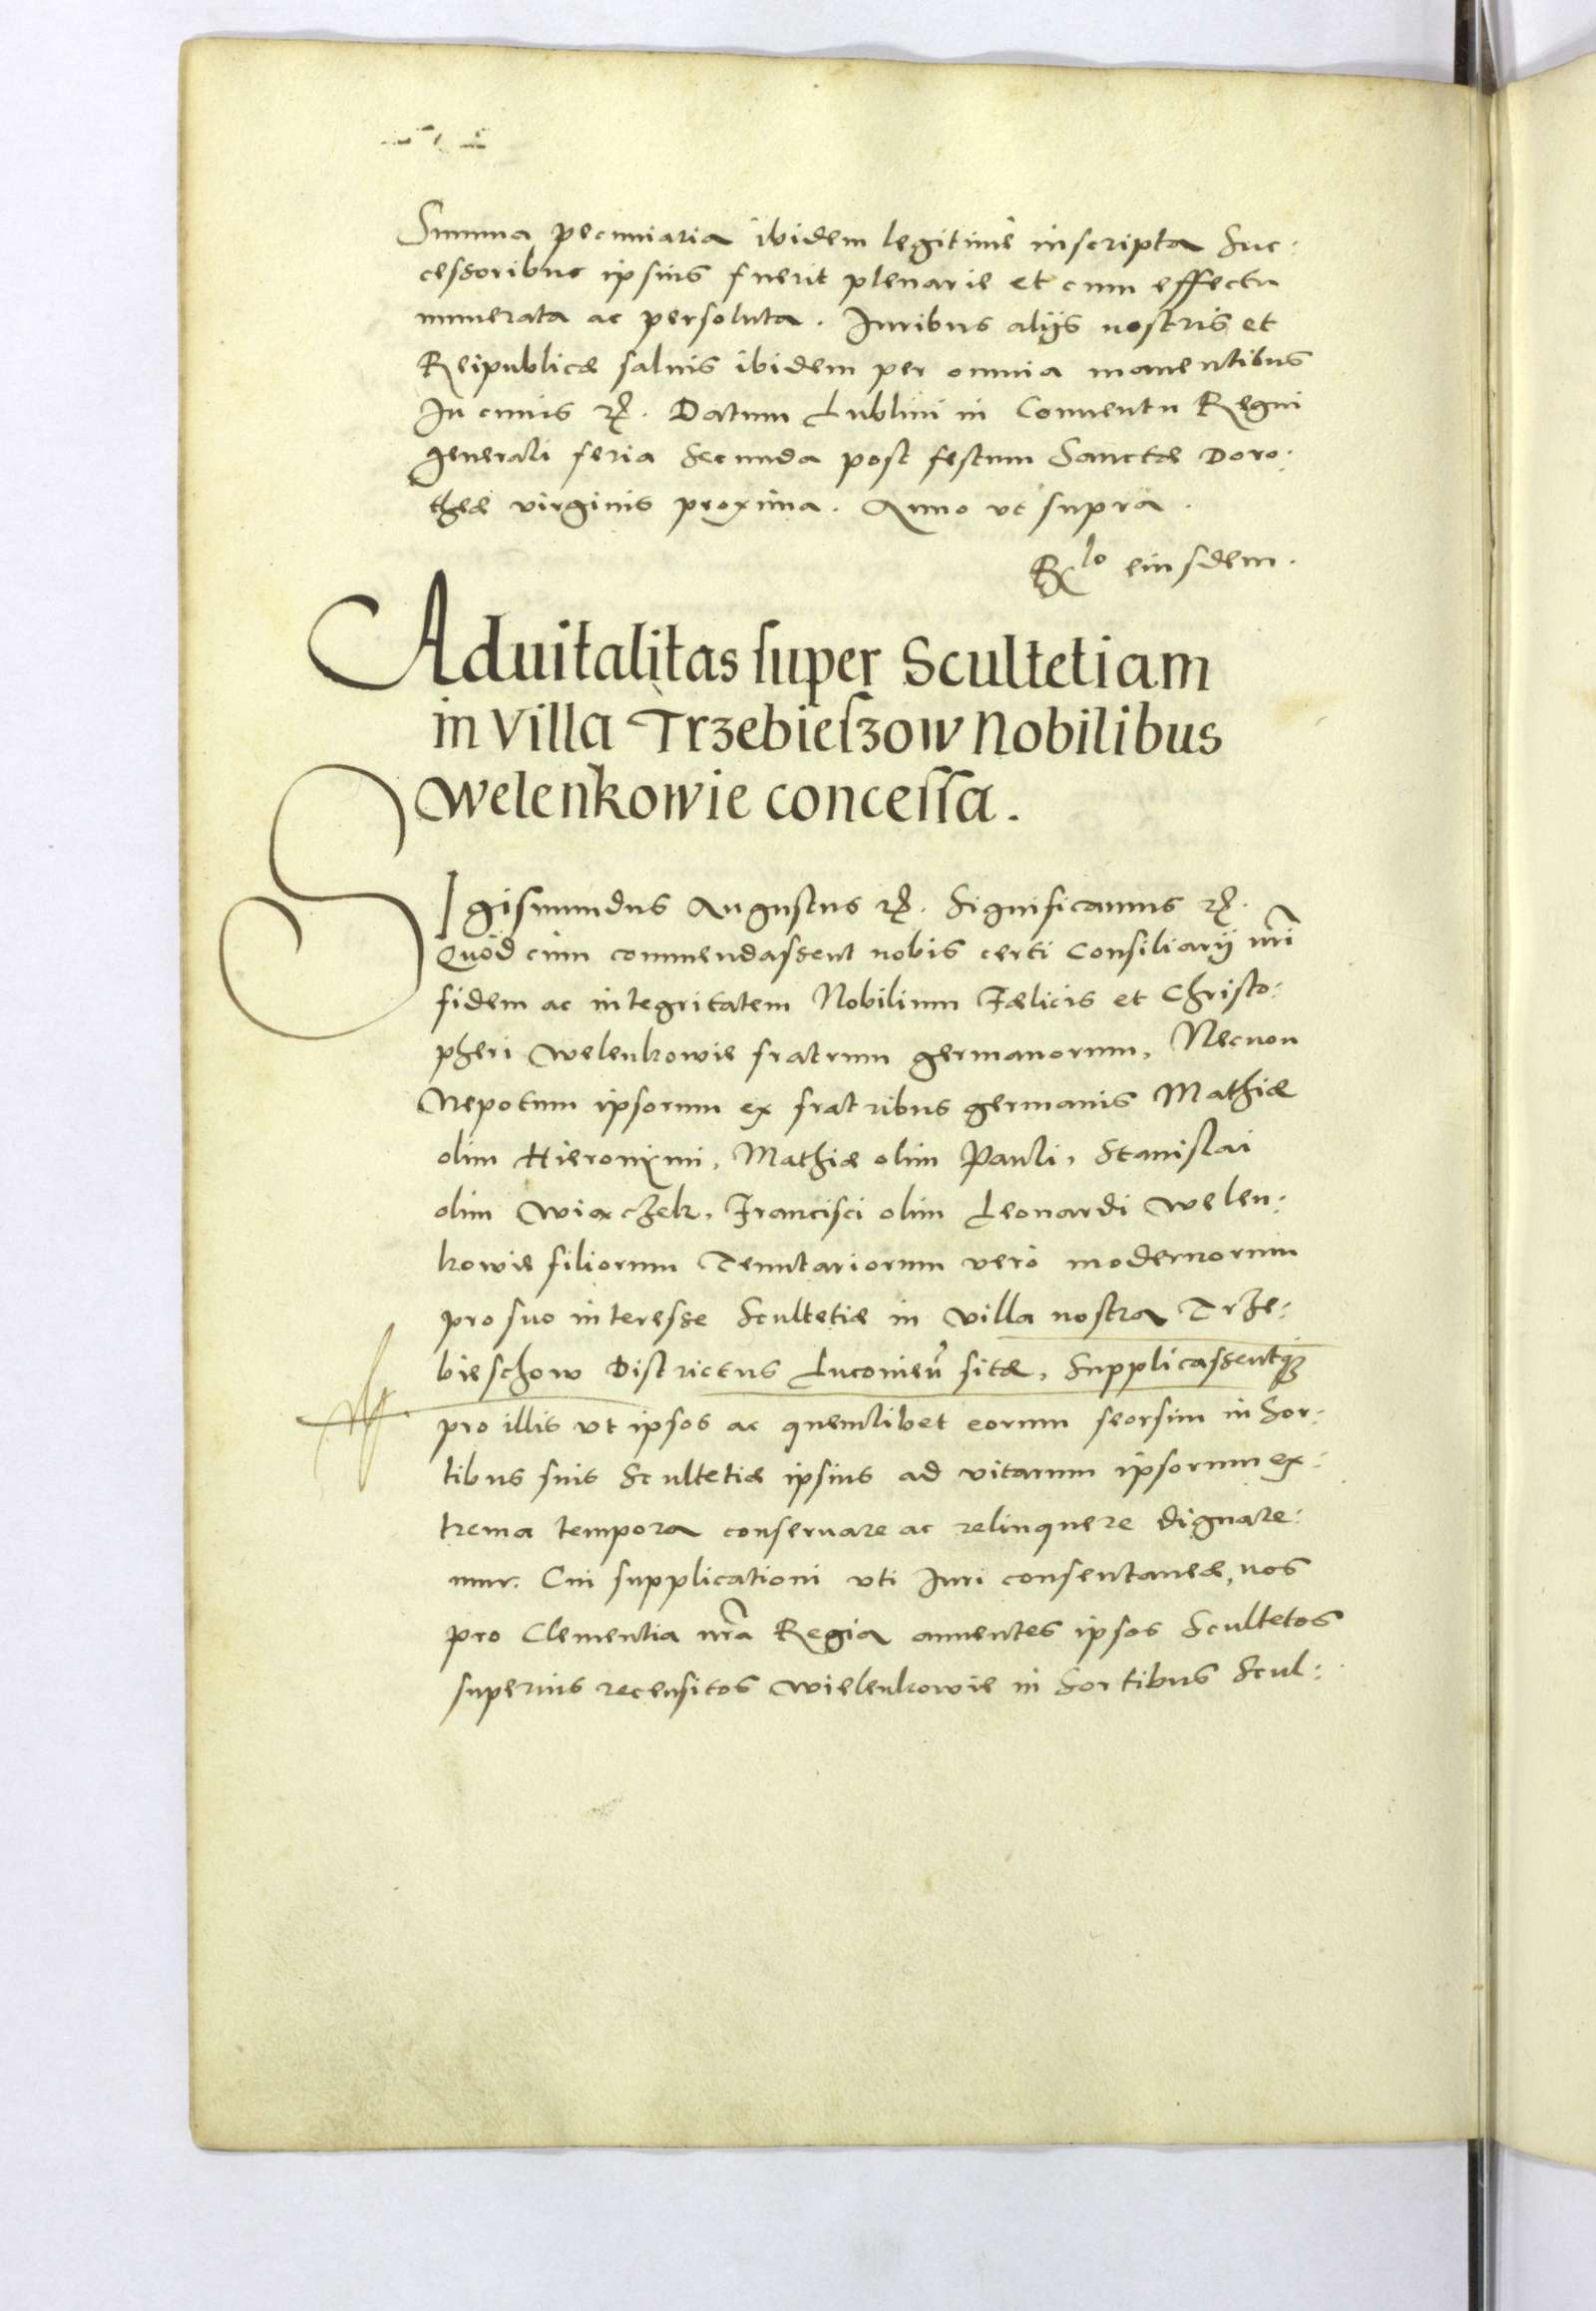 Summa pecuniaria ibidem legitime inscripta Suc:
cessoribus ipsius fuerit plenarie et cum effectu
numerata ac persoluta. Iuribus alijs nostris et
Reipublicæ saluis ibidem per omnia manentibus
In cuius ꝛc̃. Datum Lublini in Conuentu Regni
generali feria Secunda post festum Sanctæ Doro:
theæ virginis proxima. Anno vt supra.
R^lo eiusdem.
Aduitalitas super Scultetiam
in Villa Trzebieszow Nobilibus
Welenkowie concessa.
SIgismundus Augustus ꝛc̃. Significamus ꝛc̃.
Quòd cùm commendassent nobis certi Consiliarij nr̃i
fidem ac integritatem Nobilium Fælicis et Christo:
pheri Welenkowie fratrum germanorum, Necnon
Nepotum ipsorum ex fratribus germanis Mathiæ
olim Hieronimi, Mathiæ olim Pauli, Stanislai
olim Wiaczek, Francisci olim Leonardi Welen:
kowie filiorum Tenutariorum verò modernorum
pro suo interesse Scultetiæ in Villa nostra Trze:
bieschow Districtus Luconieñ sitæ, Supplicassentq3
pro illis vt ipsos ac quemlibet eorum seorsim in Sor:
tibus suis Scultetiæ ipsius ad vitarum ipsorum ex:
trema tempora conseruare ac relinquere dignare:
mur. Cui supplicationi vti Iuri consentaneæ, nos
pro Clementia nr̃a Regia annuentes ipsos Scultetos
superius recensitos Wielenkowie in Sortibus Scul: